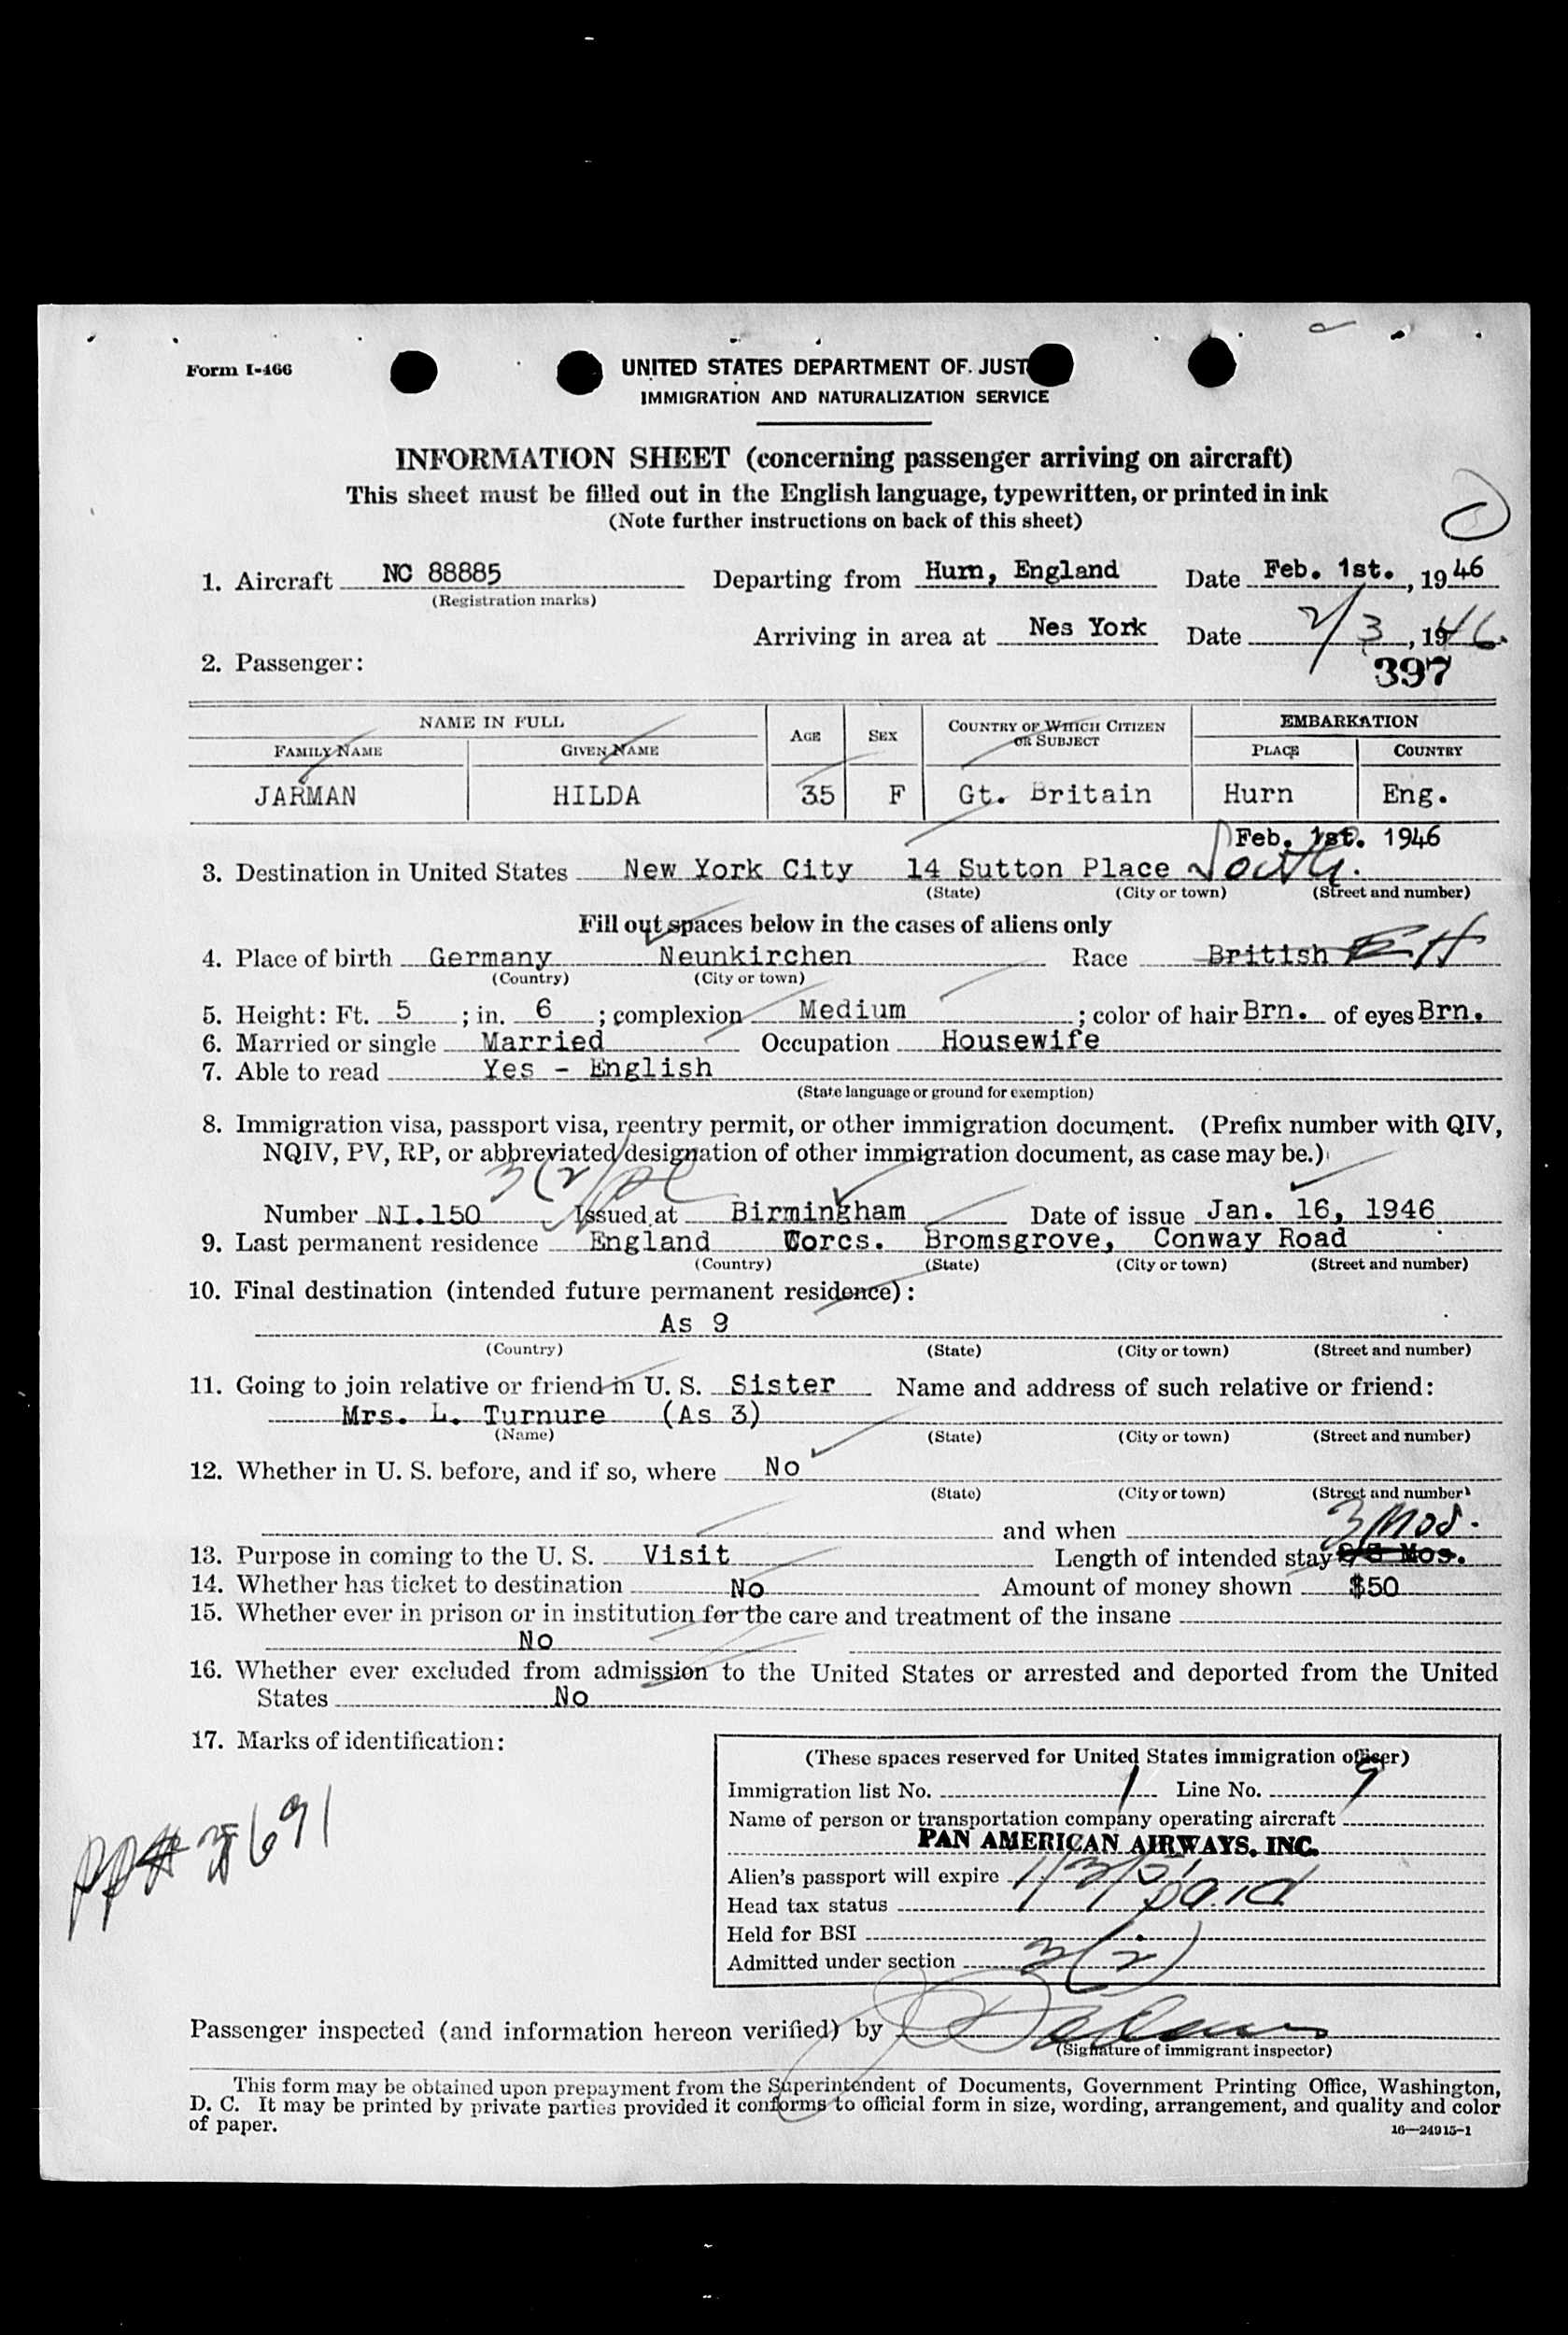 Form I-466
UNITED STATES DEPARTMENT OF JUST
IMMIGRATION AND NATURALIZATION SERVICE
INFORMATION SHEET (concerning passenger arriving on aircraft)
This sheet must be filled out in the English language, typewritten, or printed in ink
(Note further instructions on back of this sheet)
1. Aircraft NC 88885 Departing from Hurn, England Date Feb. 1st., 1946
(Registration marks)
Arriving in area at Nes York Date 2/3, 1946.
2. Passenger: 397
NAME IN FULL AGE SEX COUNTRY OF WHICH CITIZEN OR SUBJECT EMBARKATION
FAMILY NAME GIVEN NAME PLACE COUNTRY
JARMAN HILDA 35 F Gt. Britain Hurn Eng.
Feb. 1st. 1946
3. Destination in United States New York City 14 Sutton Place South.
(State) (City or town) (Street and number)
Fill out spaces below in the cases of aliens only
4. Place of birth Germany Neunkirchen Race British EH
(Country) (City or town)
5. Height: Ft. 5; in. 6; complexion Medium; color of hair Brn. of eyes Brn.
6. Married or single Married Occupation Housewife
7. Able to read Yes - English
(State language or ground for exemption)
8. Immigration visa, passport visa, reentry permit, or other immigration document. (Prefix number with QIV,
NQIV, PV, RP, or abbreviated designation of other immigration document, as case may be.)
3(2)
Number NI.150 Issued at Birmingham Date of issue Jan. 16, 1946
9. Last permanent residence England Worcs. Bromsgrove, Conway Road
(Country) (State) (City or town) (Street and number)
10. Final destination (intended future permanent residence):
As 9
(Country) (State) (City or town) (Street and number)
11. Going to join relative or friend in U. S. Sister Name and address of such relative or friend:
Mrs. L. Turnure (As 3)
(Name) (State) (City or town) (Street and number)
12. Whether in U. S. before, and if so, where No
(State) (City or town) (Street and number)
and when
3 Mos.
13. Purpose in coming to the U. S. Visit Length of intended stay Mos.
14. Whether has ticket to destination No Amount of money shown $50
15. Whether ever in prison or in institution for the care and treatment of the insane
No
16. Whether ever excluded from admission to the United States or arrested and deported from the United
States No
17. Marks of identification:
(These spaces reserved for United States immigration officer)
Immigration list No. 1 Line No. 9
Name of person or transportation company operating aircraft
PAN AMERICAN AIRWAYS, INC.
Alien's passport will expire 1/3/51
Head tax status paid
Held for BSI
Admitted under section 3(2)
Passenger inspected (and information hereon verified) by
(Signature of immigrant inspector)
This form may be obtained upon prepayment from the Superintendent of Documents, Government Printing Office, Washington,
D. C. It may be printed by private parties provided it conforms to official form in size, wording, arrangement, and quality and color
of paper.
16—24915-1